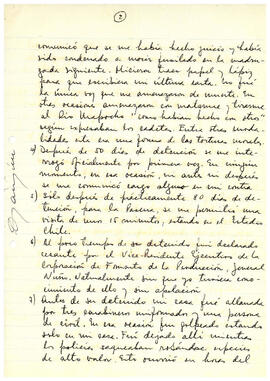 ②
comunicó que se me había hecho juicio y había
sido condenado a morir fusilado en la madru-
gada siguiente. Hicieron traer papel y lápiz
para que escribiera un última carta. No fué
la única vez que me amenazaron de muerte. En
otras ocasiones amenazaron con matarme y tirarme
al Río Mapocho "como habían hecho con otros"
según expresaban los cadetes. Entre otras moda-
lidades ésta era una forma de las torturas morales.
Después de 50 días de detención se me inte-
rrogó oficialmente por primera vez. En ningún
momento, en esa ocasión, ni antes ni después
se me comunicó cargo alguno en mi contra.
Sólo después de prácticamente 80 días de de-
tención, para la Pascua, se me permitió una
visita de unos 15 minutos, estando en el Estadio
Chile.
6) Al poco tiempo de ser detenido fuí declarado
cesante por el Vice-Presidente Ejecutivo de la
Corporación de Fomento de la Producción, General
Nuño. Naturalmente sin que yo tuviera cono-
cimiento de ello y sin apelación.
7) Antes de ser detenido mi casa fué allanada
por tres carabineros uniformados y una persona
de civil. En esa ocasión fuí golpeado estando
solo en mi casa. Fuí dejado allí mientras
los policías saqueaban robándose especies
de alto valor. Esto ocurrió en horas del